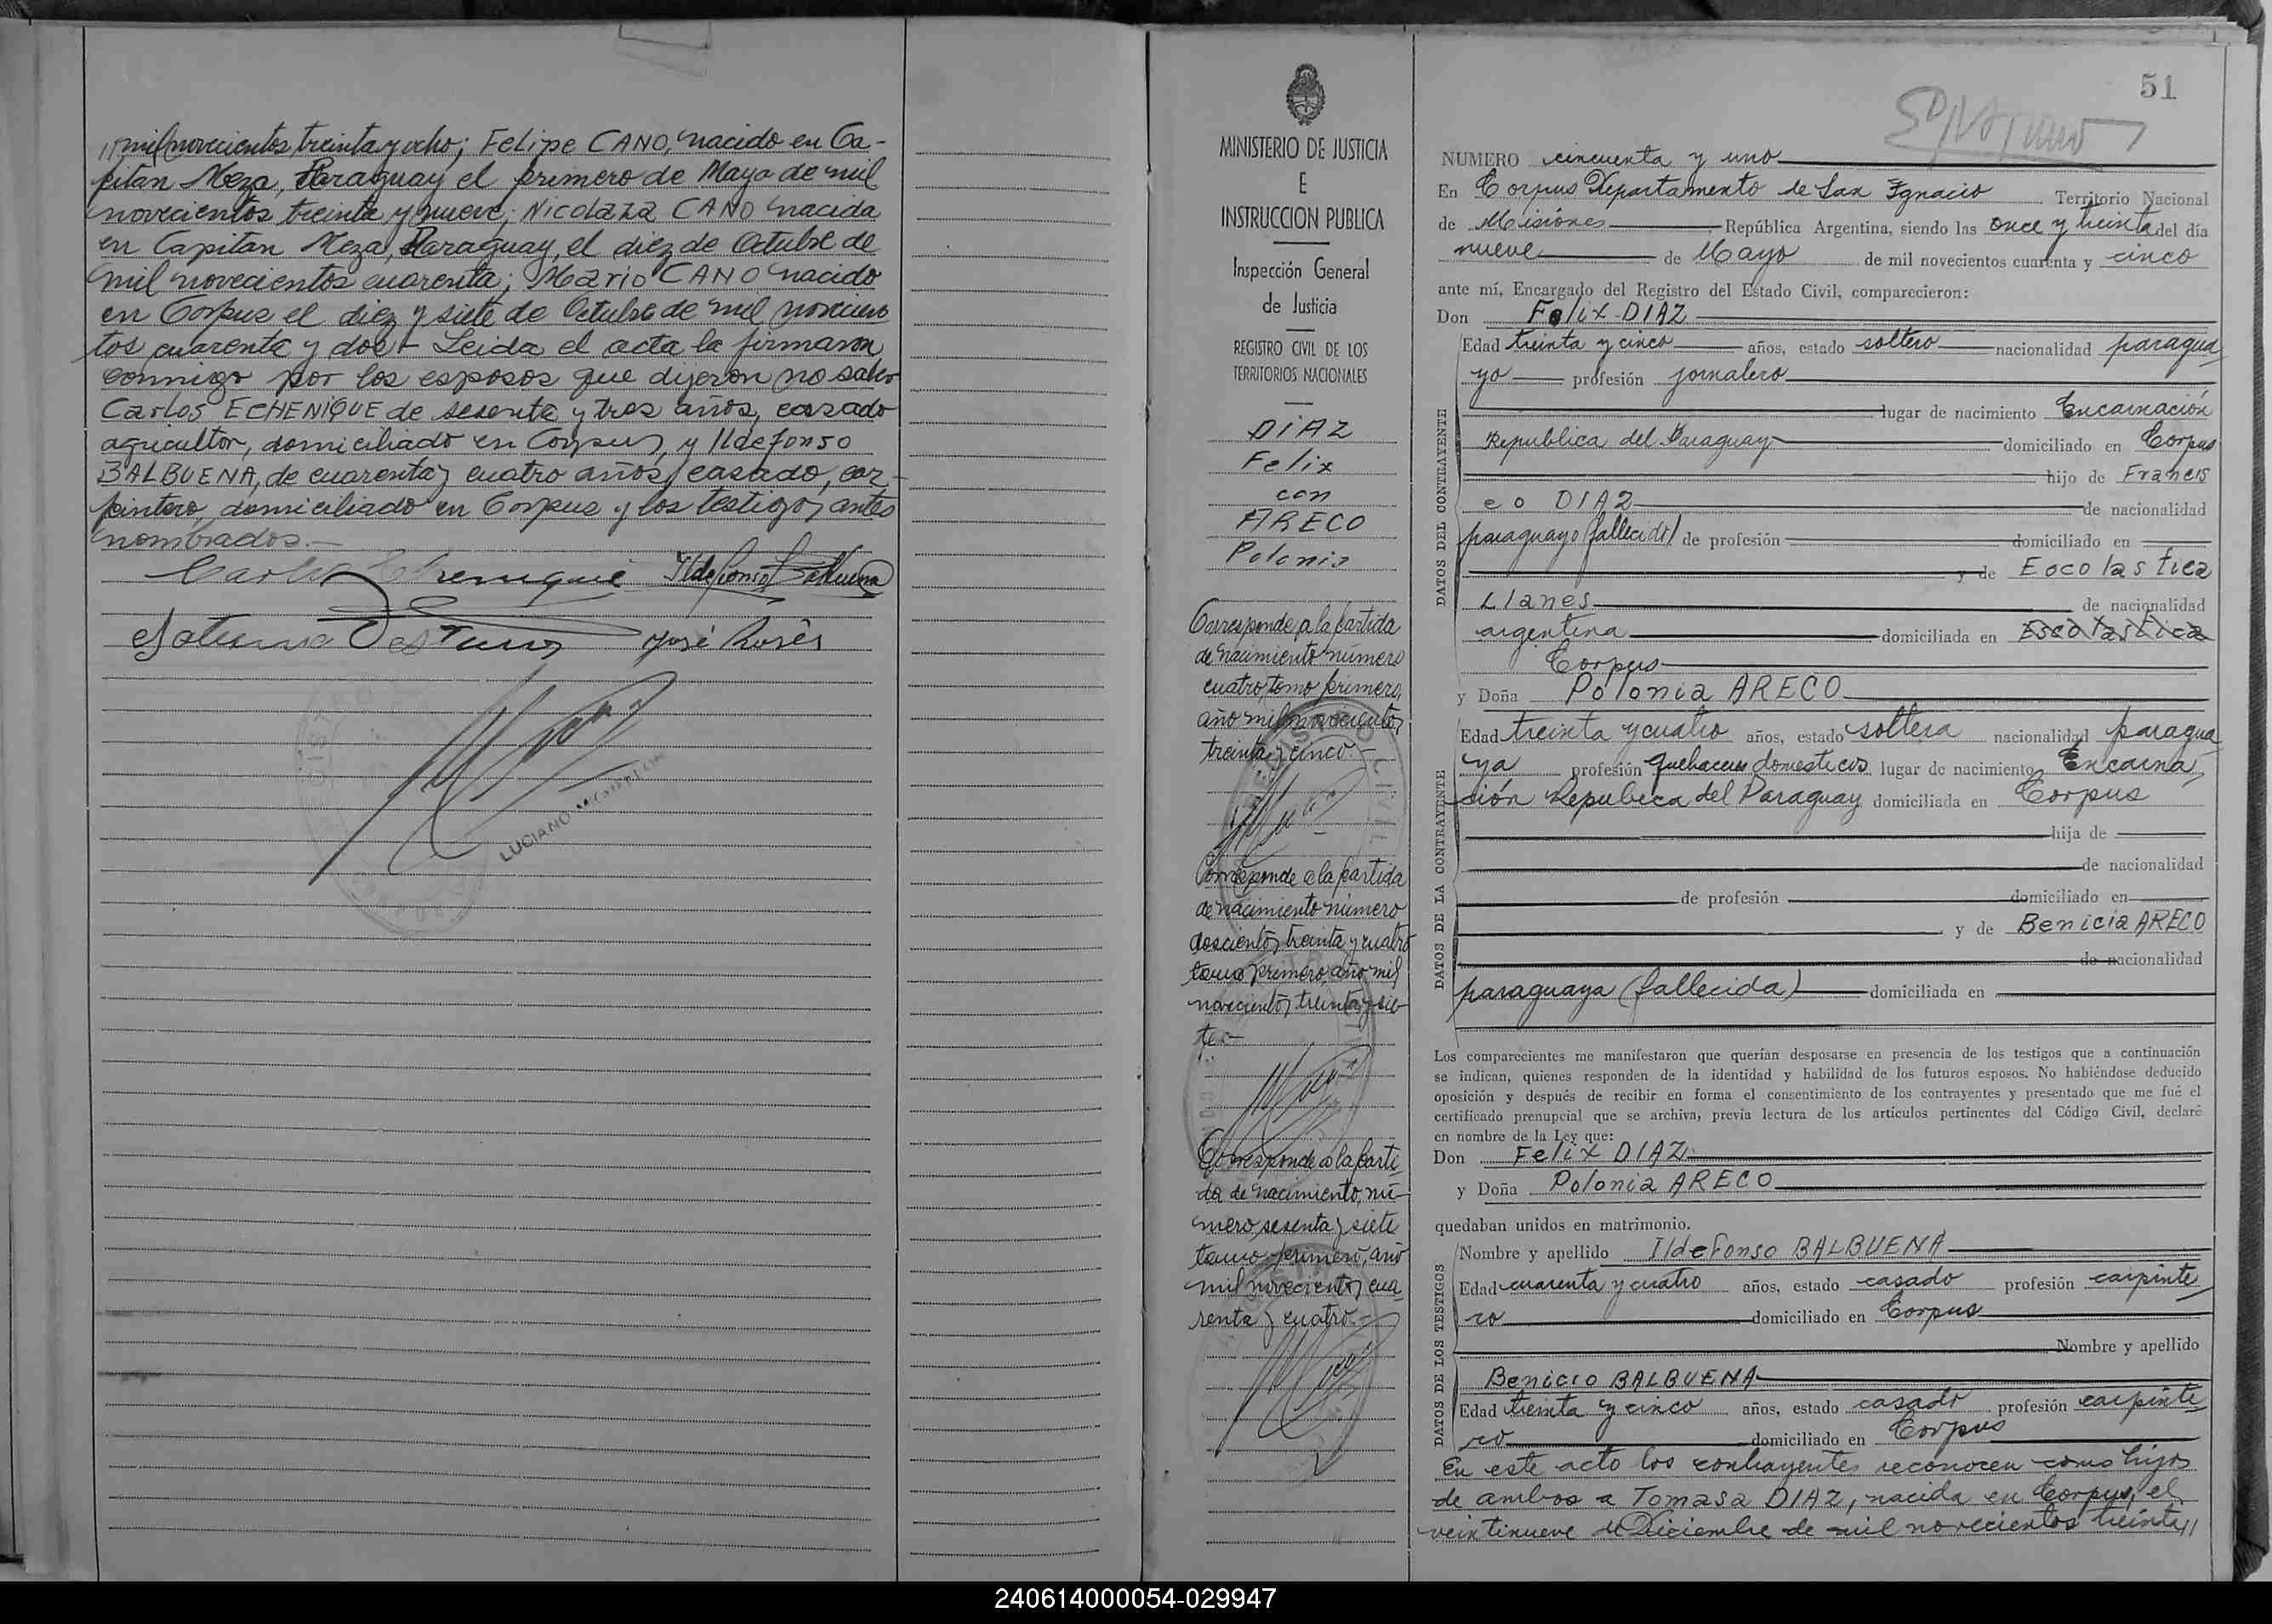 mil novecientos treinta y ocho; Felipe CANO, nacido en Ca-
pitan Meza, Paraguay el primero de Mayo de mil
novecientos treinta y nueve; Nicolaza CANO nacida
en Capitan Meza, Paraguay, el diez de Octubre de
mil novecientos cuarenta; Mario CANO nacido
en Corpus el diez y siete de Octubre de mil novecien
tos cuarenta y dos.- Leida el acta la firmaron
conmigo por los esposos que dijeron no saber
Carlos ECHENIQUE de sesenta y tres años, casado
agricultor, domiciliado en Corpus, y Ildefonso
BALBUENA, de cuarenta y cuatro años, casado, car-
pintero, domiciliado en Corpus y los testigos antes
nombrados.-
Carlos Echenique Ildefonso Balbuena
José Rosés
LUCIANO
MINISTERIO DE JUSTICIA
E
INSTRUCCION PUBLICA
Inspección General
de Justicia
REGISTRO CIVIL DE LOS
TERRITORIOS NACIONALES
DIAZ
Felix
con
ARECO
Polonia
Corresponde a la partida
de nacimiento número
cuatro, tomo primero,
año mil novecientos
treinta y cinco.-
Corresponde a la partida
de nacimiento número
doscientos treinta y cuatro
tomo primero, año mil
novecientos treinta y sie-
te.-
Corresponde a la parti
da de nacimiento, nú-
mero sesenta y siete
tomo primero, año
mil novecientos cua
renta y cuatro.-
51
NUMERO cincuenta y uno
En Corpus Departamento de San Ignacio Territorio Nacional
de Misiones República Argentina, siendo las once y treinta del día
nueve de Mayo de mil novecientos cuarenta y cinco
ante mí, Encargado del Registro del Estado Civil, comparecieron:
Don Felix DIAZ
DATOS DEL CONTRAYENTE
Edad treinta y cinco años, estado soltero nacionalidad paragua
yo profesión jornalero
lugar de nacimiento Encarnación
Republica del Paraguay domiciliado en Corpus
hijo de Francis
co DIAZ de nacionalidad
paraguayo (fallecido) de profesión domiciliado en
y de Escolastica
Llanes de nacionalidad
argentina domiciliada en Escolastica
Corpus
y Doña Polonia ARECO
DATOS DE LA CONTRAYENTE
Edad treinta y cuatro años, estado soltera nacionalidad paragua
ya profesión quehaceres domesticos lugar de nacimiento Encarna
ción Republica del Paraguay domiciliada en Corpus
hija de
de nacionalidad
de profesión domiciliado en
y de Benicia ARECO
de nacionalidad
paraguaya (fallecida) domiciliada en
Los comparecientes me manifestaron que querían desposarse en presencia de los testigos que a continuación
se indican, quienes responden de la identidad y habilidad de los futuros esposos. No habiéndose deducido
oposición y después de recibir en forma el consentimiento de los contrayentes y presentado que me fué el
certificado prenupcial que se archiva, previa lectura de los artículos pertinentes del Código Civil, declaré
en nombre de la Ley que:
Don Felix DIAZ
y Doña Polonia ARECO
quedaban unidos en matrimonio.
DATOS DE LOS TESTIGOS
Nombre y apellido Ildefonso BALBUENA
Edad cuarenta y cuatro años, estado casado profesión carpinte
ro domiciliado en Corpus
Nombre y apellido
Benicio BALBUENA
Edad treinta y cinco años, estado casado profesión carpinte
ro domiciliado en Corpus
En este acto los contrayentes reconocen como hijos
de ambos a Tomasa DIAZ, nacida en Corpus, el
veintinueve de Diciembre de mil novecientos treinta //
240614000054-029947